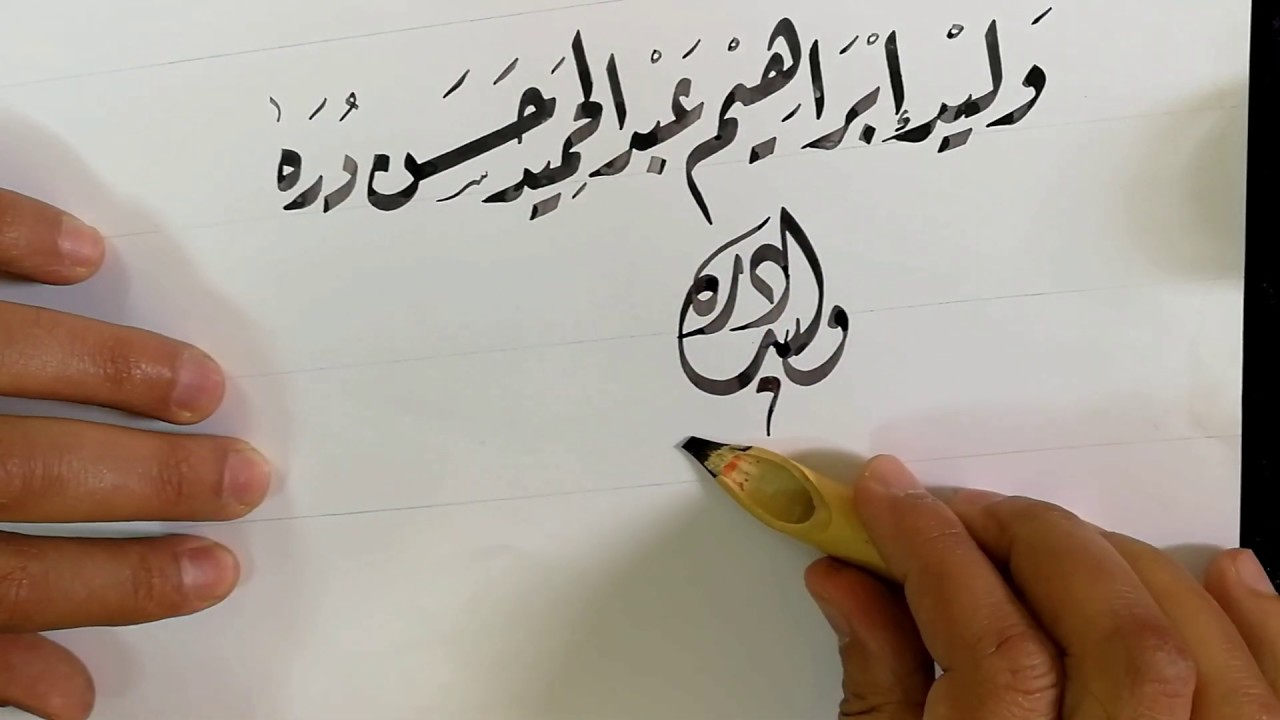 وَليْد إبْرَاهِيْم عَبْد الحَمِيد حَسَن دُرَه
وليد دره